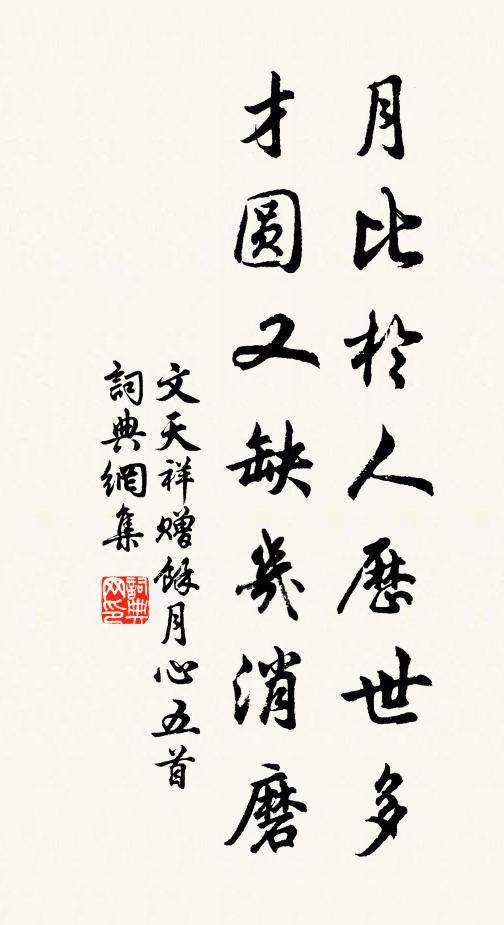 月比於人歷世多
才圓又缺幾消磨
文天祥贈餘月心五首
詞典網集
詞典網印